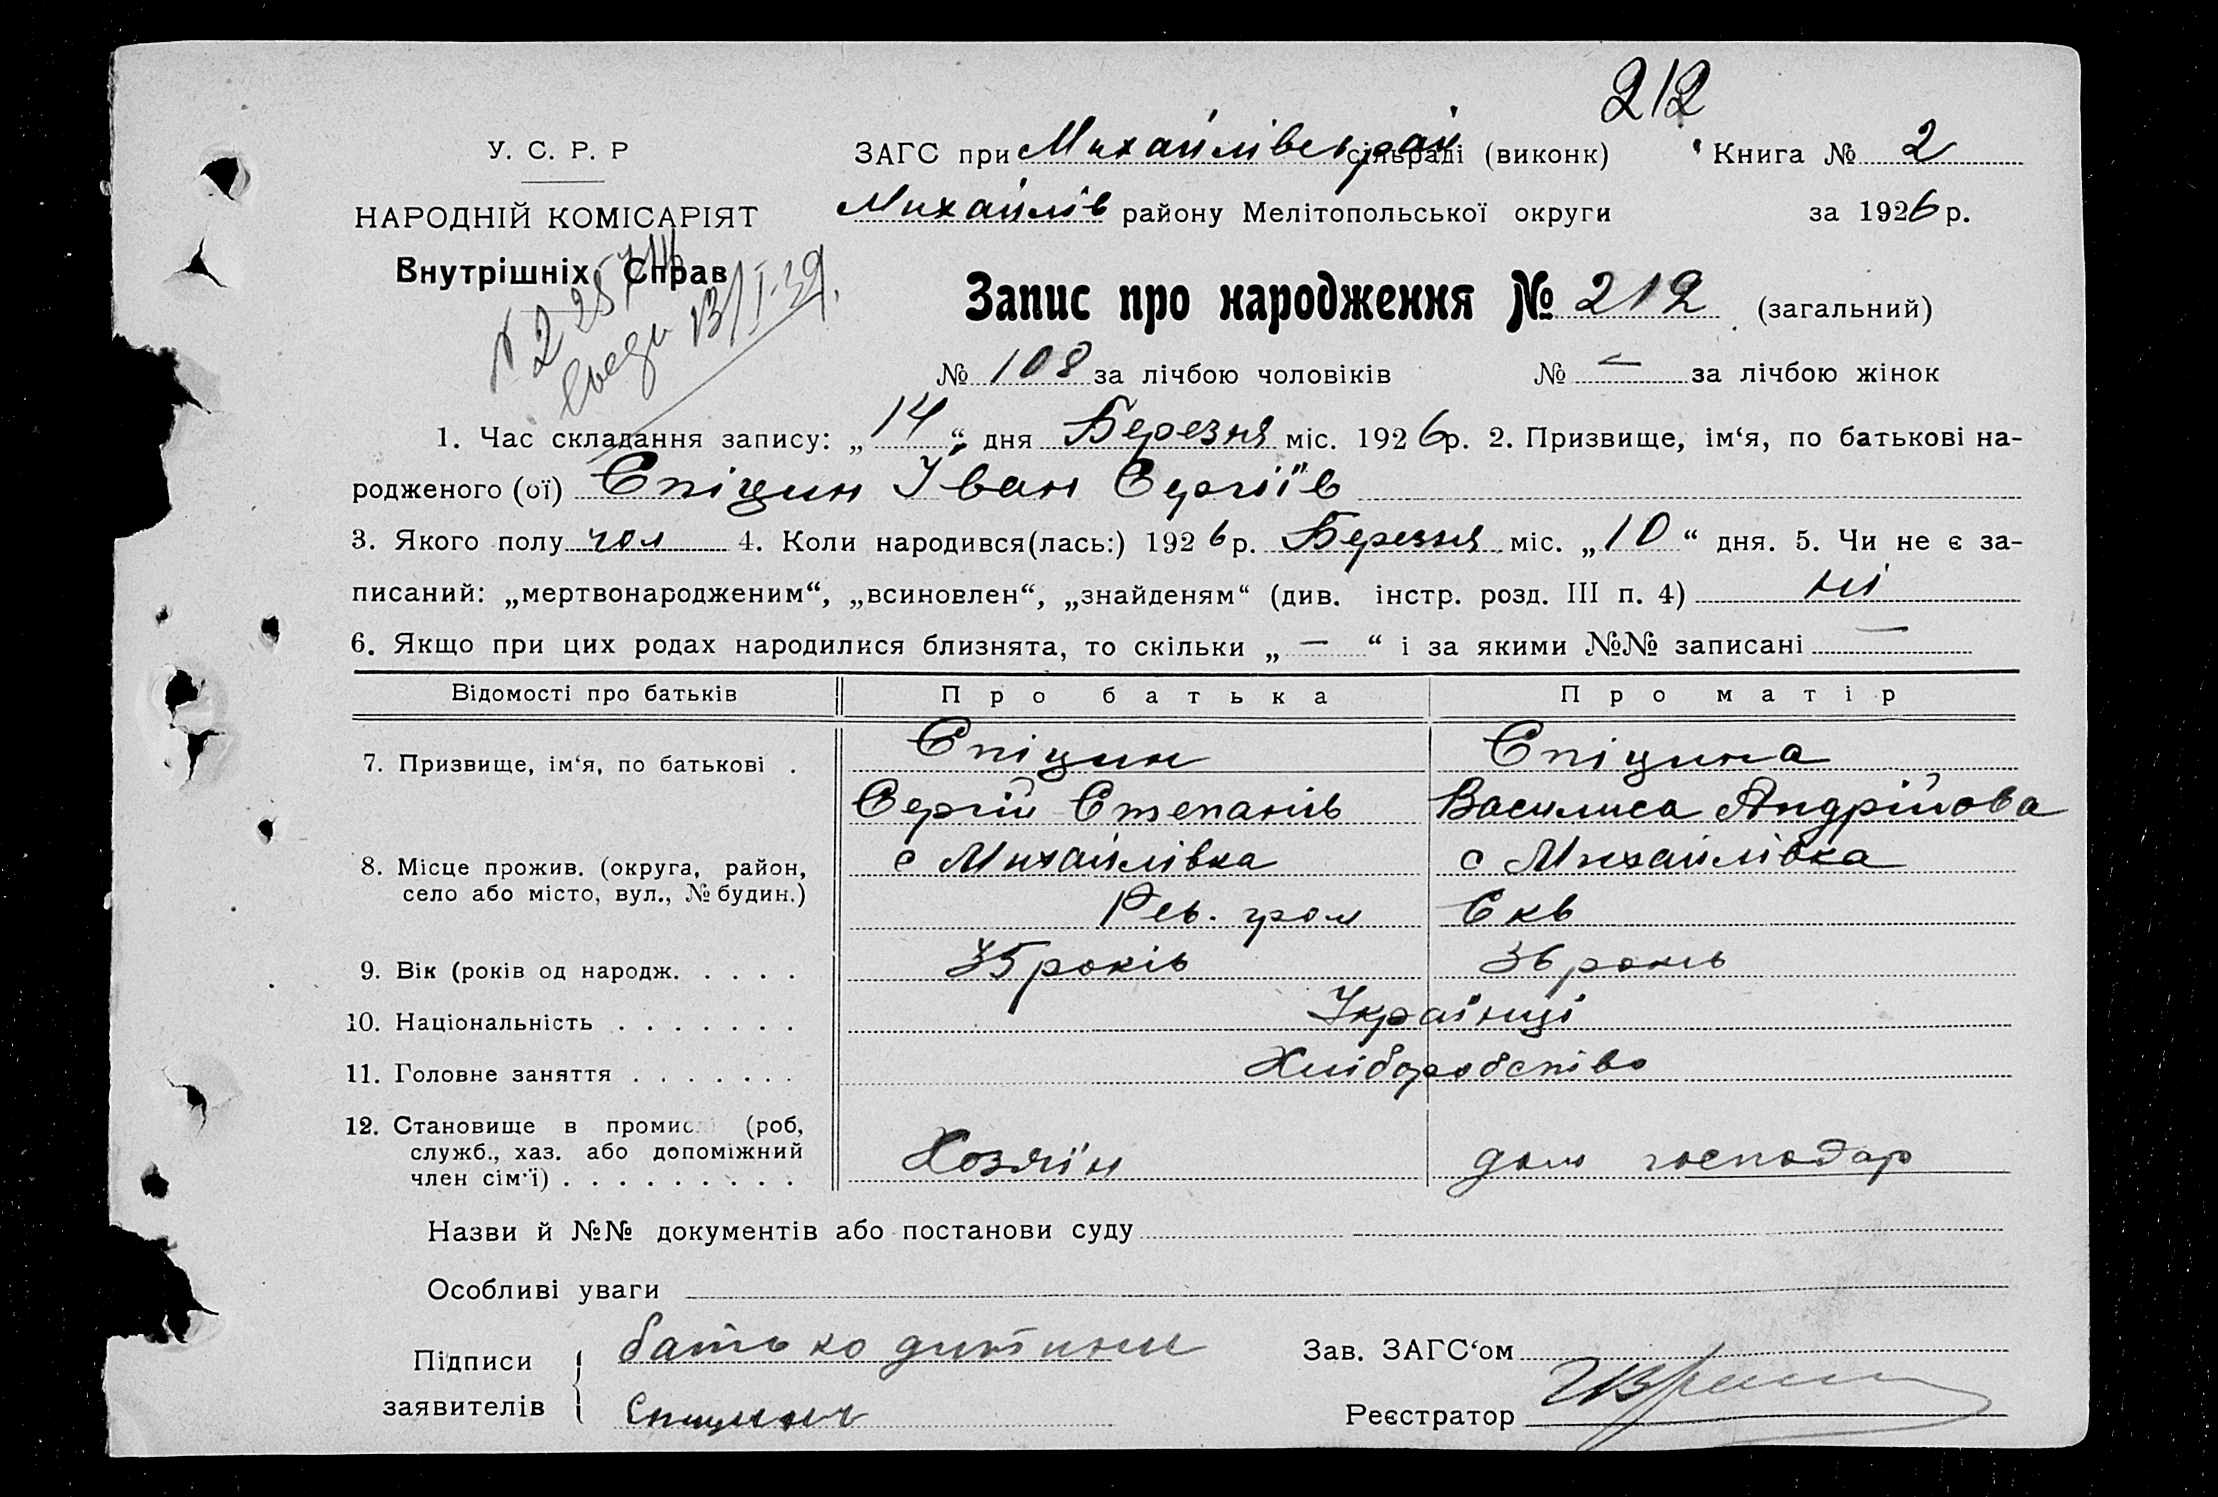 212
У. С. Р. Р
ЗАГС при Михайлівськ рай сільраді (виконк) Книга № 2
НАРОДНІЙ КОМІСАРІЯТ
Михайлів району Мелітопольської округи за 1926 р.
Внутрішніх Справ
13/I-39.
Запис про народження № 212 (загальний)
№ 108 за лічбою чоловіків № — за лічбою жінок
1. Час складання запису: „14“ дня Березня міс. 1926 р. 2. Призвище, ім‘я, по батькові на-
родженого (ої) Спіцин Іван Сергіїв
3. Якого полу чол 4. Коли народився(лась:) 1926 р. Березня міс. „10“ дня. 5. Чи не є за-
писаний: „мертвонародженим“, „всиновлен“, „знайденям“ (див. інстр. розд. III п. 4) ні
6. Якщо при цих родах народилися близнята, то скільки „—“ і за якими №№ записані —
Відомості про батьків Про батька Про матір
7. Призвище, ім‘я, по батькові . Спіцин Спіцина
Сергій Степанів Василиса Андрійова
8. Місце прожив. (округа, район, с Михайлівка с Михайлівка
село або місто, вул., № будин.) Рев. гром Скв
9. Вік (років од народж. . . . . 35 років 36 років
10. Національність . . . . . . . Українці
11. Головне заняття . . . . . . . Хліборобство
12. Становище в промисл (роб,
служб., хаз. або допоміжний
член сім‘ї) . . . . . . . . . Хозяїн дом господар
Назви й №№ документів або постанови суду
Особливі уваги
Підписи батько дитини Зав. ЗАГС‘ом
заявителів Спицин Реєстратор